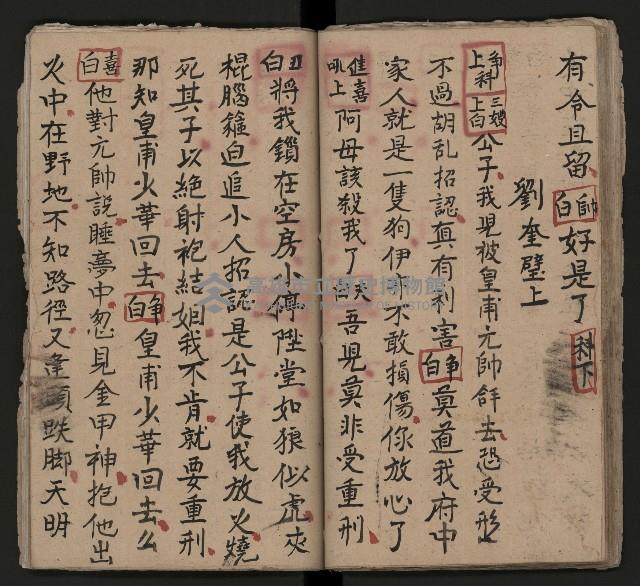 有令且留帥白好是了科下
劉奎壁上
爭上科三嫂上白公子我児被皇甫元帥舒去恐受形
不過胡乱招認真有利害爭白莫道我府中
家人就是一隻狗伊亦不敢損傷伱放心了
進喜吼上阿母該殺我了夫白吾児莫非受重刑
丑白將我鎖在空房小椇陞堂如狼似虎夾
棍腦箍迫追小人招認是公子使我放火燒
死其子以絶射袍結姻我不肯就要重刑
那知皇甫少華回去爭白皇甫少華回去么
喜白他對元帥說睡夢中忽見金甲神抱他出
火中在野地不知路徑又蓬頭跌脚天明
高雄市立歷史博物館